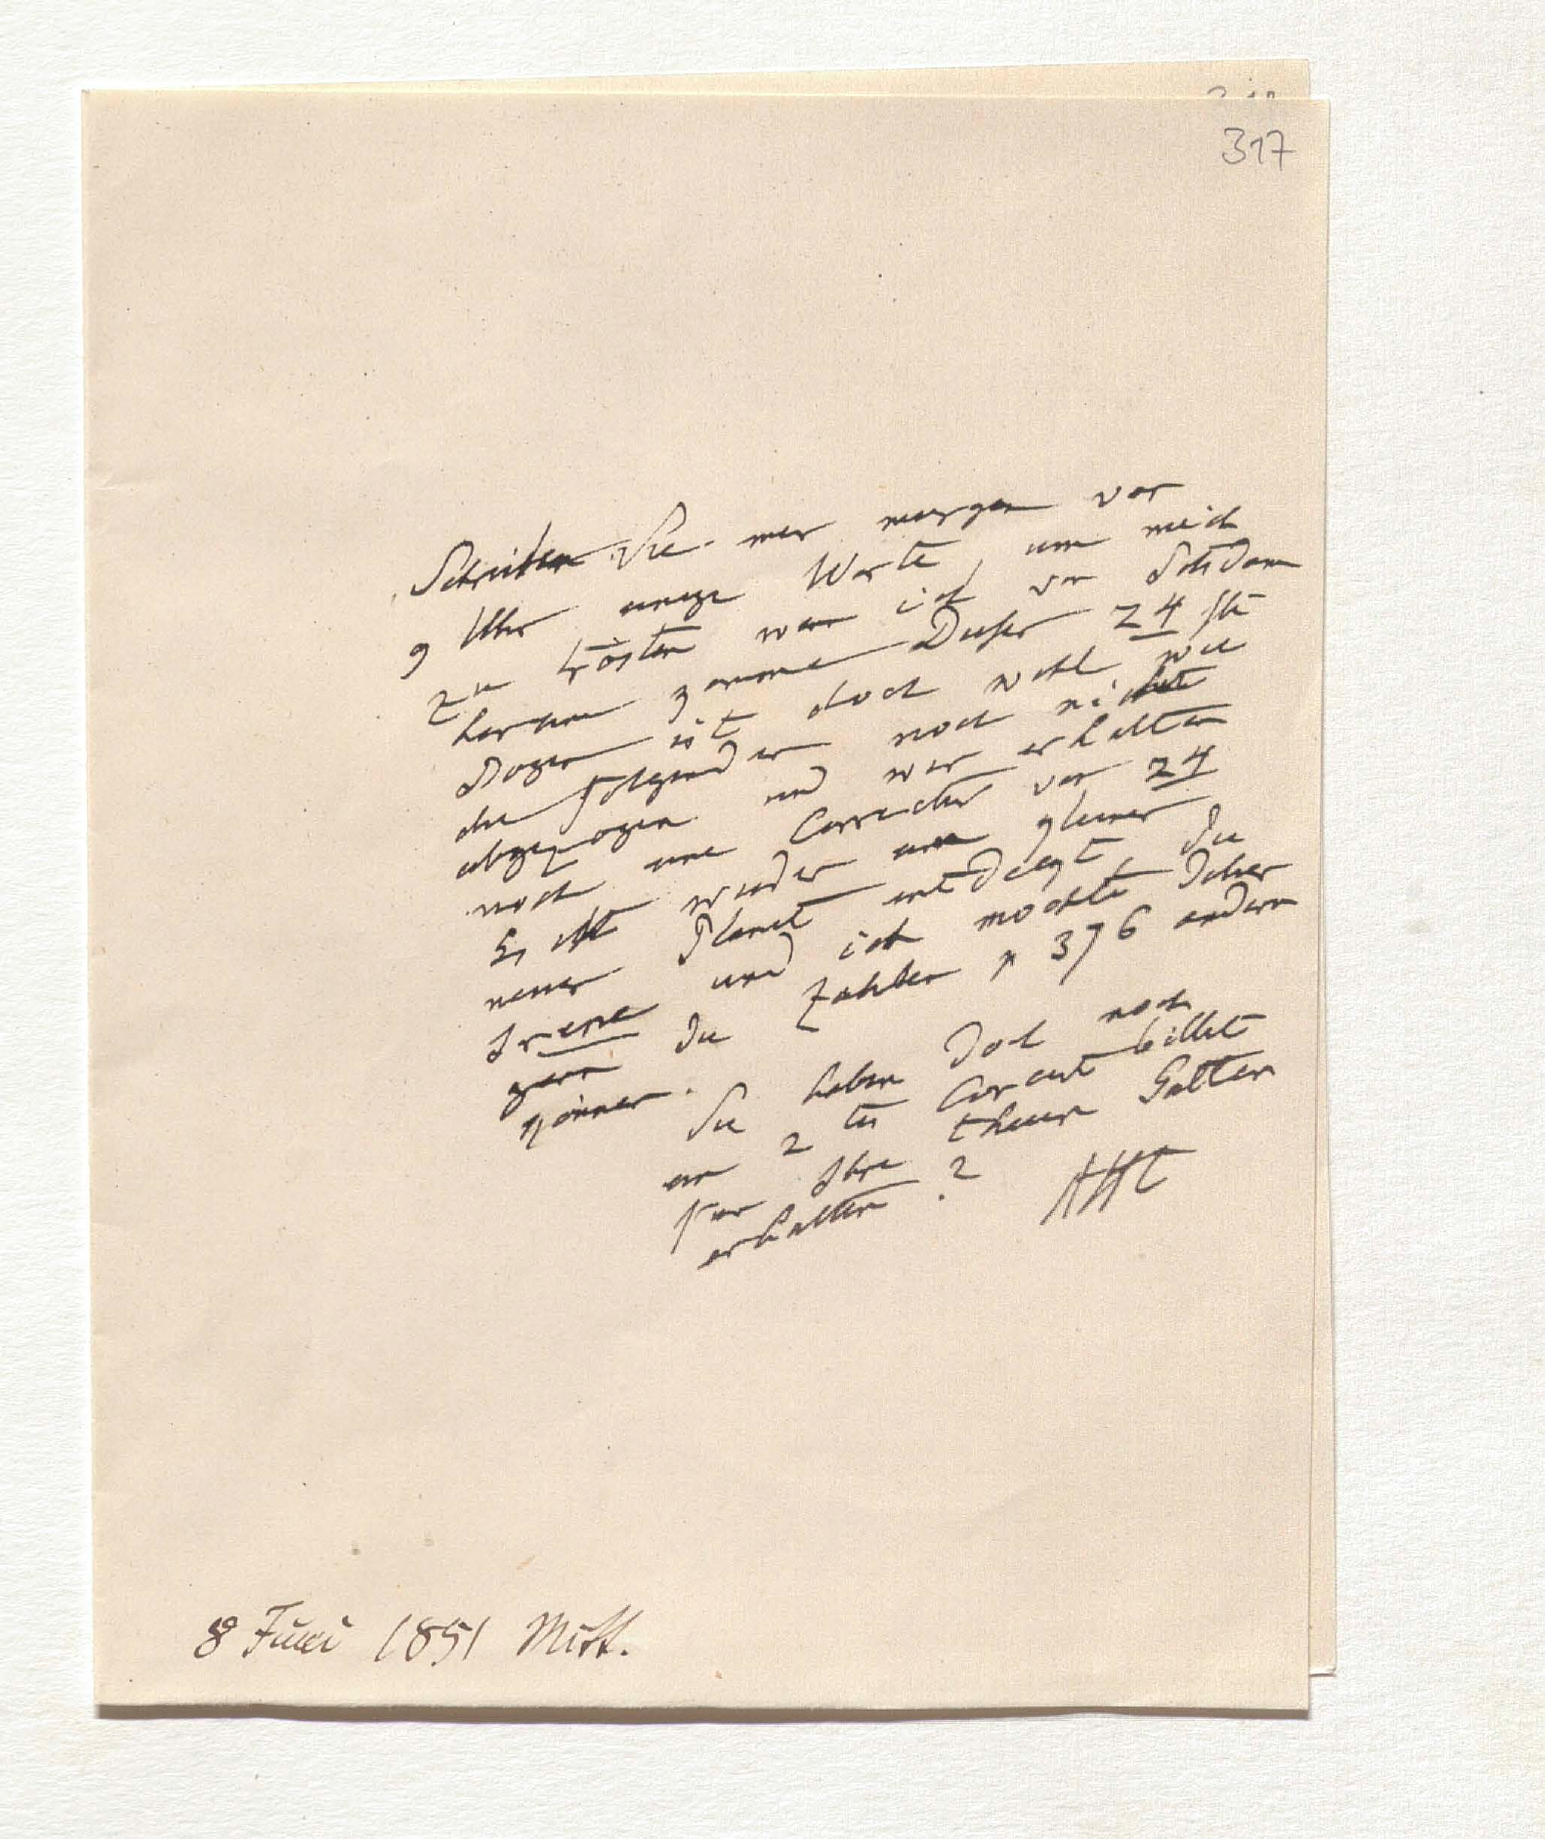 317
Schreiben Sie mir morgen vor
9 Uhr einige Worte, um mich
zu trösten wen ich von Potsdam
herein komme Dieser 24ste
Bogen ist doch wohl wie
die folgenden noch nicht
abgezogen und wir erhalten
noch eine Correctur von 24
Es ist wieder ein kleiner
neuer Planet entdeckt, die
Irene und ich mochte daher
gern die Zahlen p 376 ändern
können.
Sie haben doch noch
ein 2tes Concert billet
für Ihre theure Gattin
erhalten?
AHt
8 Juni 1851 Mitt.